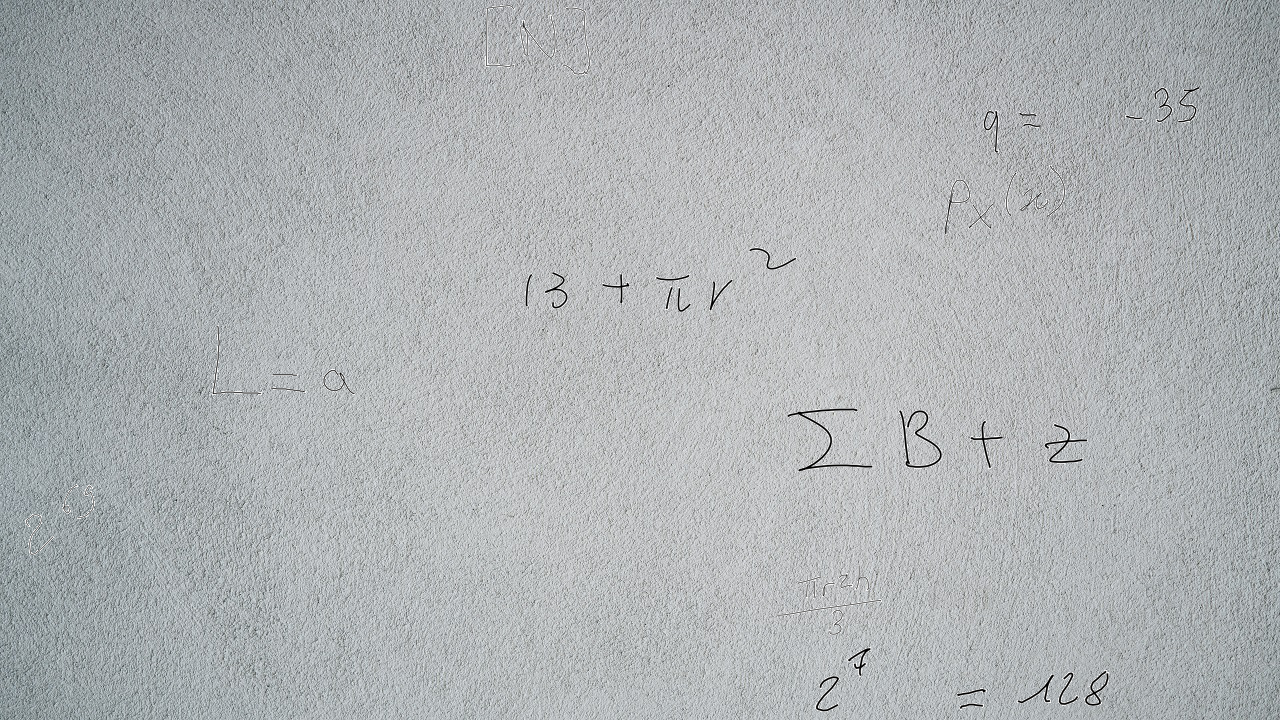 [N]
q = -35
P_X(x)
13 + πr²
L = a
∑ B + z
πr²h/3
2⁷ = 128